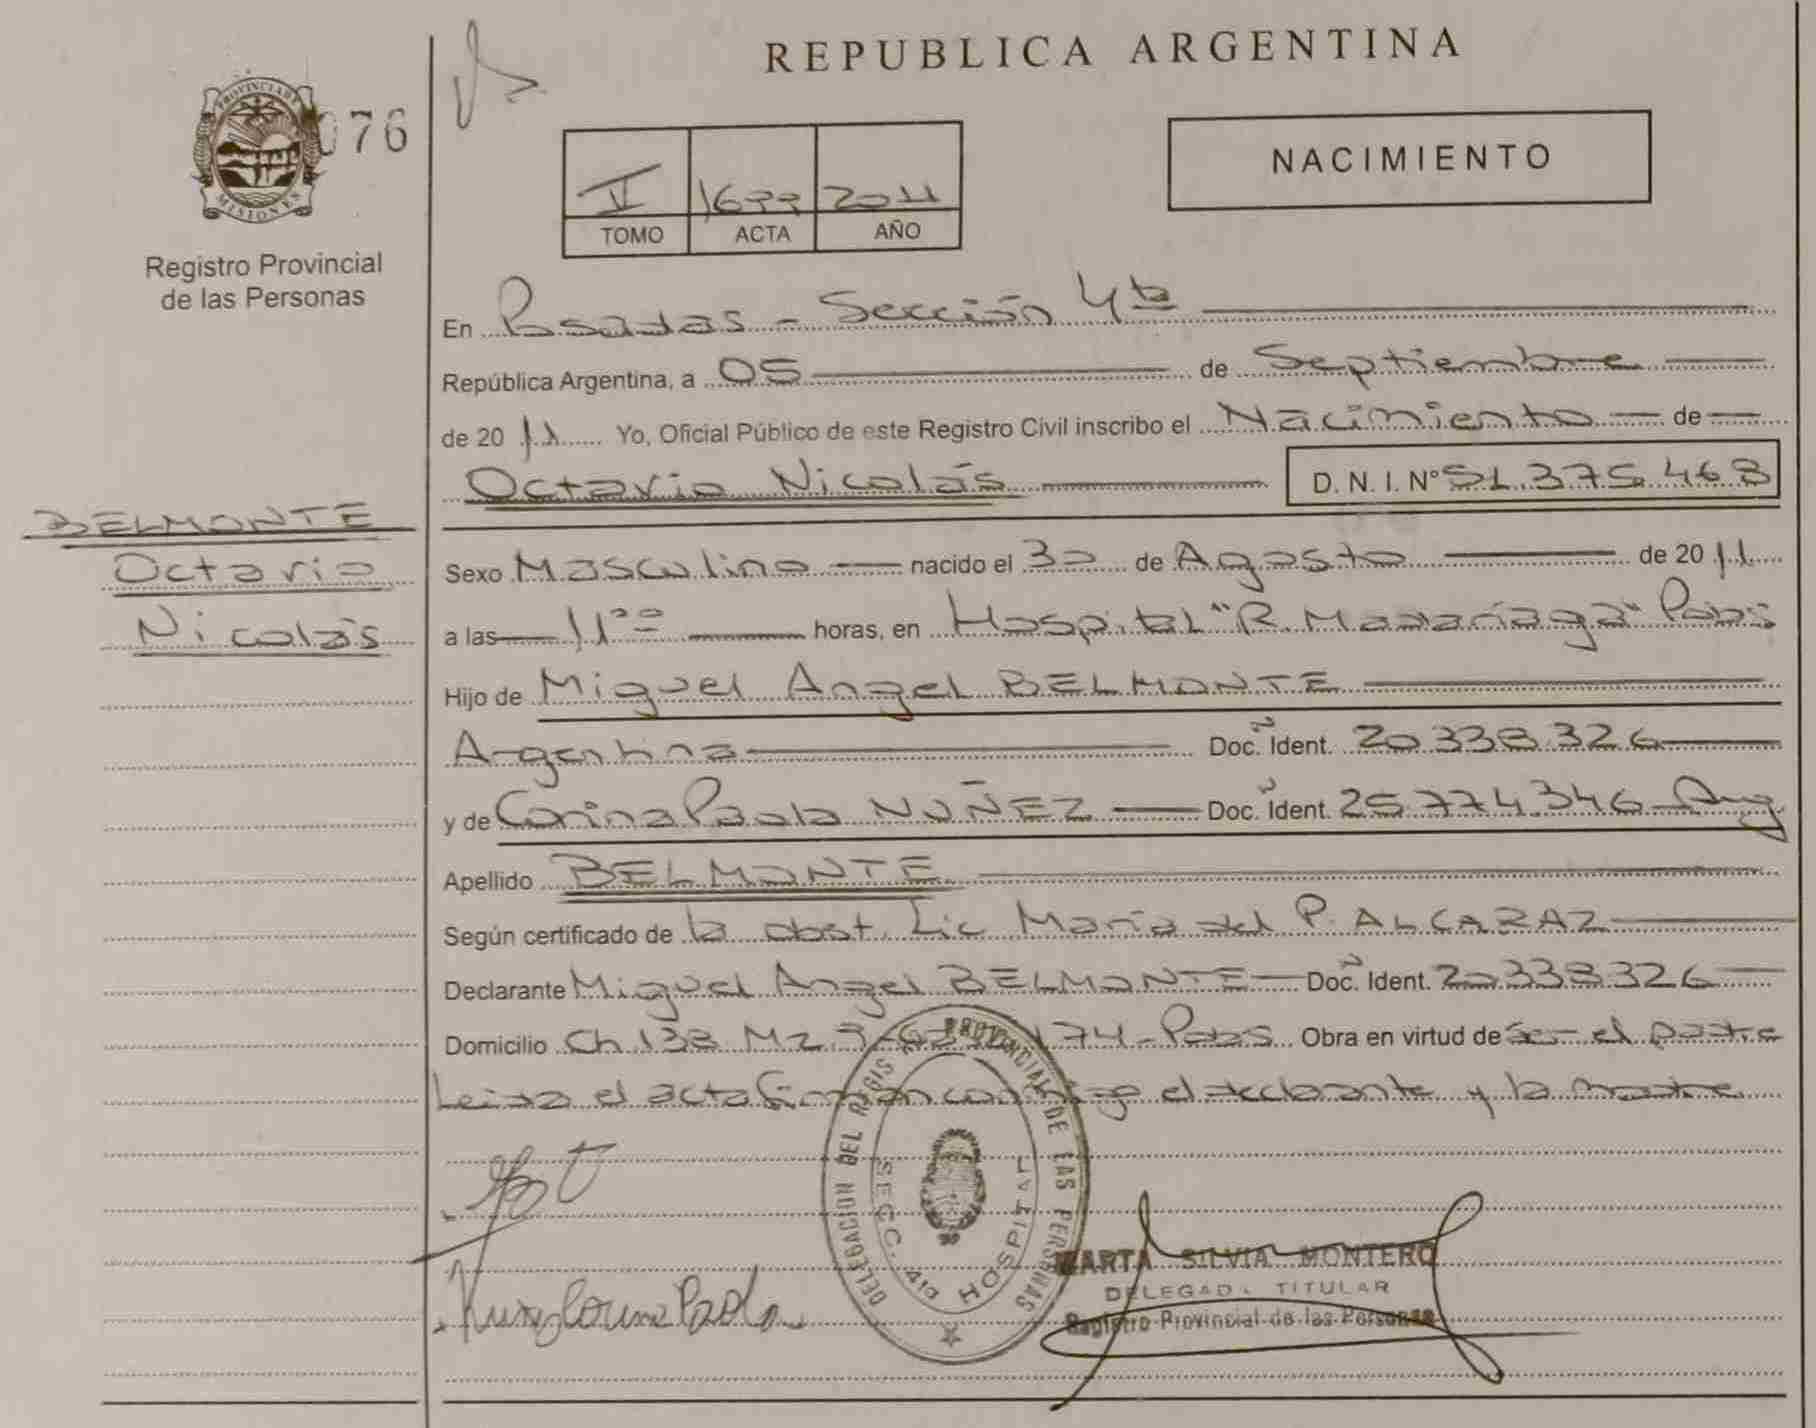 REPUBLICA ARGENTINA
PROVINCIA DE MISIONES
076
Registro Provincial
de las Personas
NACIMIENTO
II 1677 2011
TOMO ACTA AÑO
En Posadas - Sección 4ta
República Argentina, a 05 de Septiembre
de 2011 Yo, Oficial Público de este Registro Civil inscribo el Nacimiento de
Octavio Nicolás D.N.I. Nº 51.375.468
BELMONTE
Octavio
Nicolás
Sexo Masculino nacido el 30 de Agosto de 2011
a las 11 00 horas, en Hospital "R. Madariaga" Pdas
Hijo de Miguel Angel BELMONTE
Argentina Doc. Ident. 20.338.326
y de Corina Paola NUÑEZ Doc. Ident. 25.774.346 Arg
Apellido BELMONTE
Según certificado de la obst. Lic María del P. ALCARAZ
Declarante Miguel Angel BELMONTE Doc. Ident. 20.338.326
Domicilio Ch 138 Mz 9 174 - Pdas Obra en virtud de ser el padre
Leida el acta firman conmigo el declarante y la madre
DELEGACION DEL REGISTRO PROVINCIAL DE LAS PERSONAS
SECC. 4ta HOSPITAL
MARTA SILVIA MONTERO
DELEGADA TITULAR
Registro Provincial de las Personas
Nuñez Corina Paola